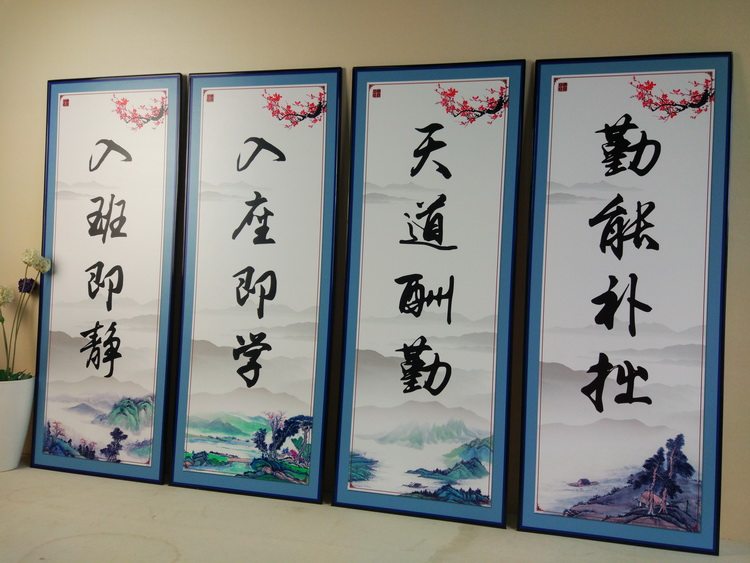 入班即静
入座即学
天道酬勤
勤能补拙